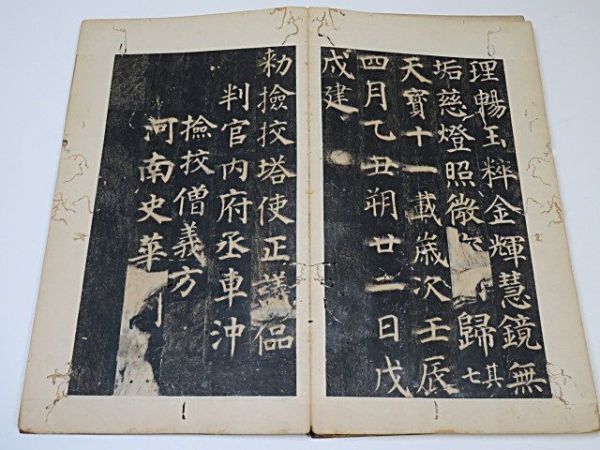 理暢玉粹金輝慧鏡無
垢慈燈照微歸其七
天寶十一載歲次壬辰
四月乙丑朔廿二日戊
戌建
勅撿挍塔使正議偘
判官內府丞車沖
撿挍僧義方
河南史華